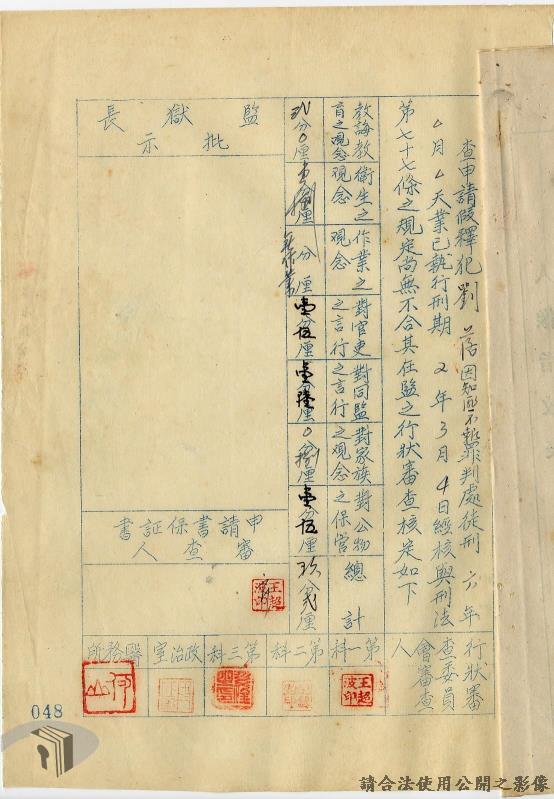 查申請假釋犯劉 因知匪不報罪判處徒刑 六年
0月0天業已執行刑期 2年3月4日經核與刑法
第七十七條之規定尚無不合其在監之行狀審查核定如下
教誨教育之觀念
衛生之觀念
作業之觀念
對官吏之言行
對同監之言行
對家族之觀念
對公物之保管
總計
分0厘
分 厘
壹分伍厘
壹分 厘
0分捌厘
壹分伍厘
玖分 厘
監獄長
批示
申請書保証書
審查人
王超波印
行狀審查委員會審查人
第一科
第二科
第三科
政治室
醫務所
王超波印
何山
048
請合法使用公開之影像